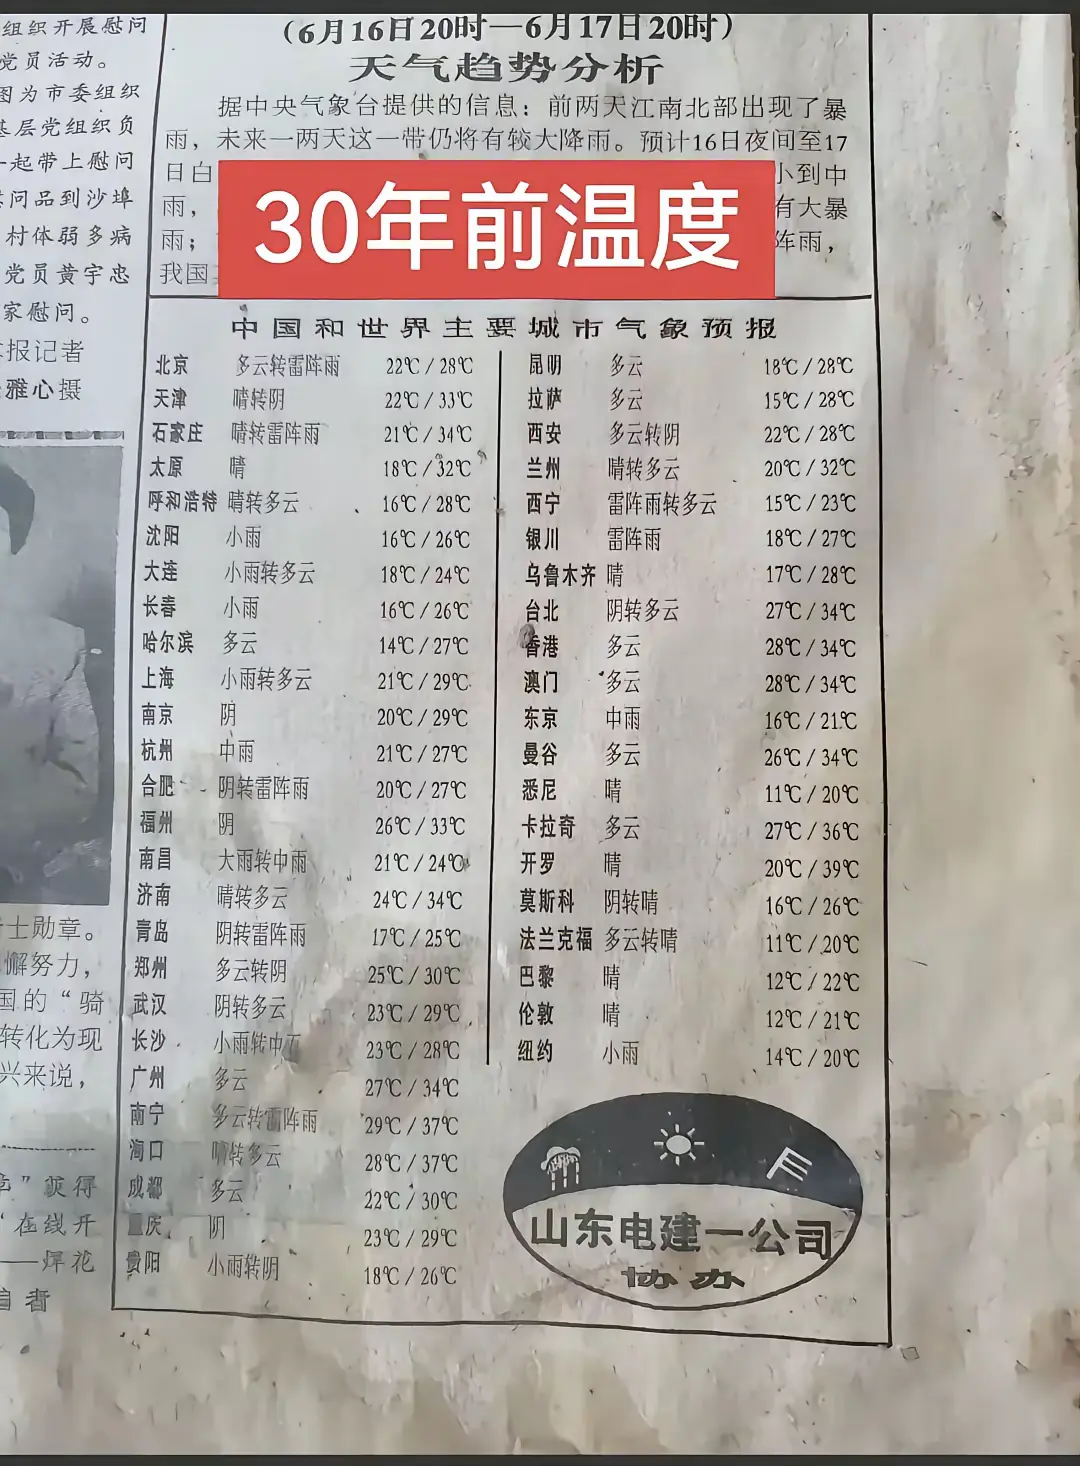 组织开展慰问
党员活动。
图为市委组织
基层党组织负
一起带上慰问
慰问品到沙埠
村体弱多病
党员黄宇忠
家慰问。
本报记者
雅心摄
士勋章。
懈努力，
国的“骑
转化为现
兴来说，
”获得
“在线开
——焊花
编者
（6月16日20时—6月17日20时）
天气趋势分析
据中央气象台提供的信息：前两天江南北部出现了暴
雨，未来一两天这一带仍将有较大降雨。预计16日夜间至17
日白 小到中
雨， 有大暴
雨； 阵雨，
我国
30年前温度
中国和世界主要城市气象预报
北京 多云转雷阵雨 22℃/28℃
天津 晴转阴 22℃/33℃
石家庄 晴转雷阵雨 21℃/34℃
太原 晴 18℃/32℃
呼和浩特 晴转多云 16℃/28℃
沈阳 小雨 16℃/26℃
大连 小雨转多云 18℃/24℃
长春 小雨 16℃/26℃
哈尔滨 多云 14℃/27℃
上海 小雨转多云 21℃/29℃
南京 阴 20℃/29℃
杭州 中雨 21℃/27℃
合肥 阴转雷阵雨 20℃/27℃
福州 阴 26℃/33℃
南昌 大雨转中雨 21℃/24℃
济南 晴转多云 24℃/34℃
青岛 阴转雷阵雨 17℃/25℃
郑州 多云转阴 25℃/30℃
武汉 阴转多云 23℃/29℃
长沙 小雨转中雨 23℃/28℃
广州 多云 27℃/34℃
南宁 多云转雷阵雨 29℃/37℃
海口 晴转多云 28℃/37℃
成都 多云 22℃/30℃
重庆 阴 23℃/29℃
贵阳 小雨转阴 18℃/26℃
昆明 多云 18℃/28℃
拉萨 多云 15℃/28℃
西安 多云转阴 22℃/28℃
兰州 晴转多云 20℃/32℃
西宁 雷阵雨转多云 15℃/23℃
银川 雷阵雨 18℃/27℃
乌鲁木齐 晴 17℃/28℃
台北 阴转多云 27℃/34℃
香港 多云 28℃/34℃
澳门 多云 28℃/34℃
东京 中雨 16℃/21℃
曼谷 多云 26℃/34℃
悉尼 晴 11℃/20℃
卡拉奇 多云 27℃/36℃
开罗 晴 20℃/39℃
莫斯科 阴转晴 16℃/26℃
法兰克福 多云转晴 11℃/20℃
巴黎 晴 12℃/22℃
伦敦 晴 12℃/21℃
纽约 小雨 14℃/20℃
山东电建一公司
协办